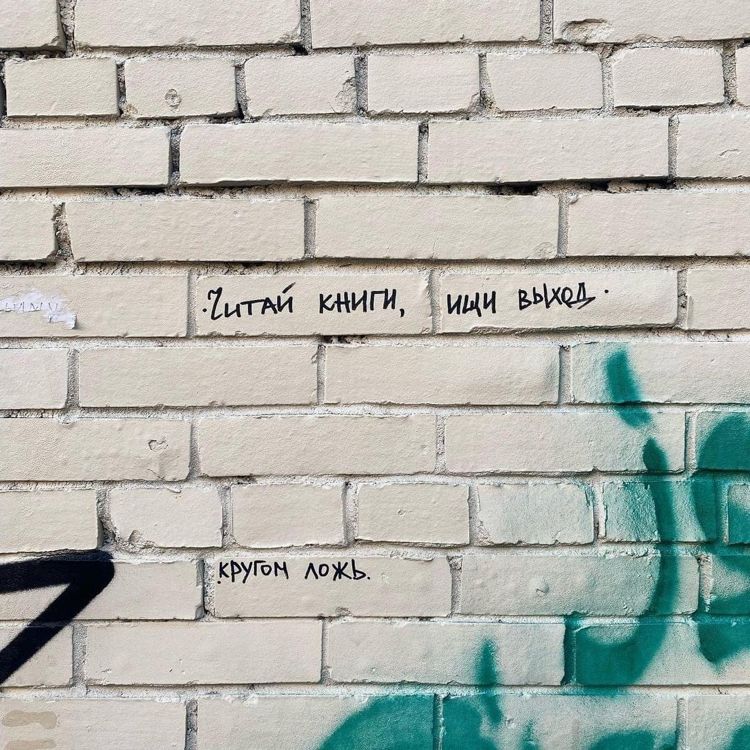 ·Читай книги, ищи выход·
кругом ложь.